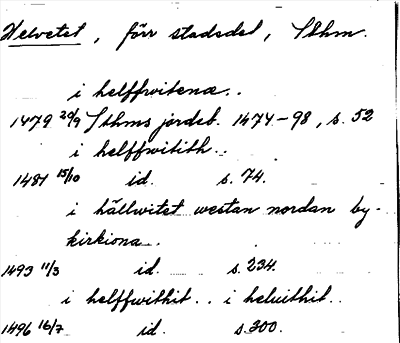 Helvetet, förr stadsdel, Sthm.
i helffwitena..
1479 20/9 Sthms jordeb. 1474-98, s. 52
i helffwitith..
1481 15/10 id. s. 74.
i hällwitet westan nordan by-
kirkiona..
1493 11/3 id. s. 234.
i helffwithit.. i heluithit..
1496 16/7 id. s. 300.